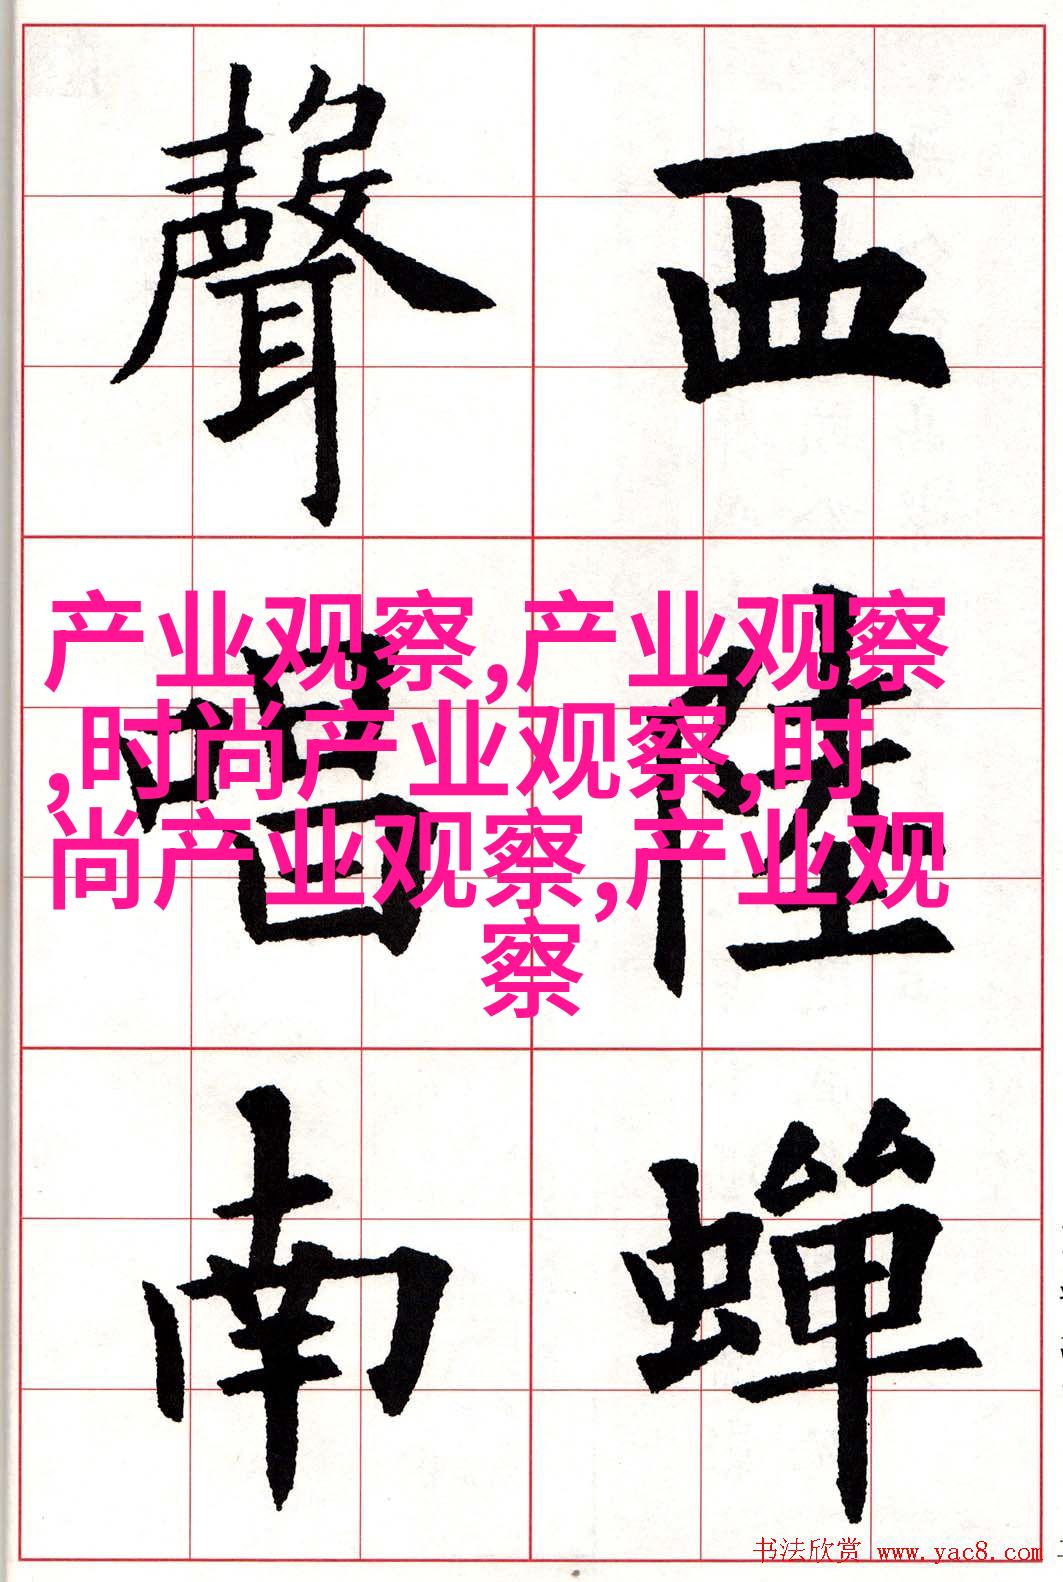 西陸蟬
聲唱南
产业观察,产业观察
,时尚产业观察,时
尚产业观察,产业观
察
书法欣赏 www.yac8.com